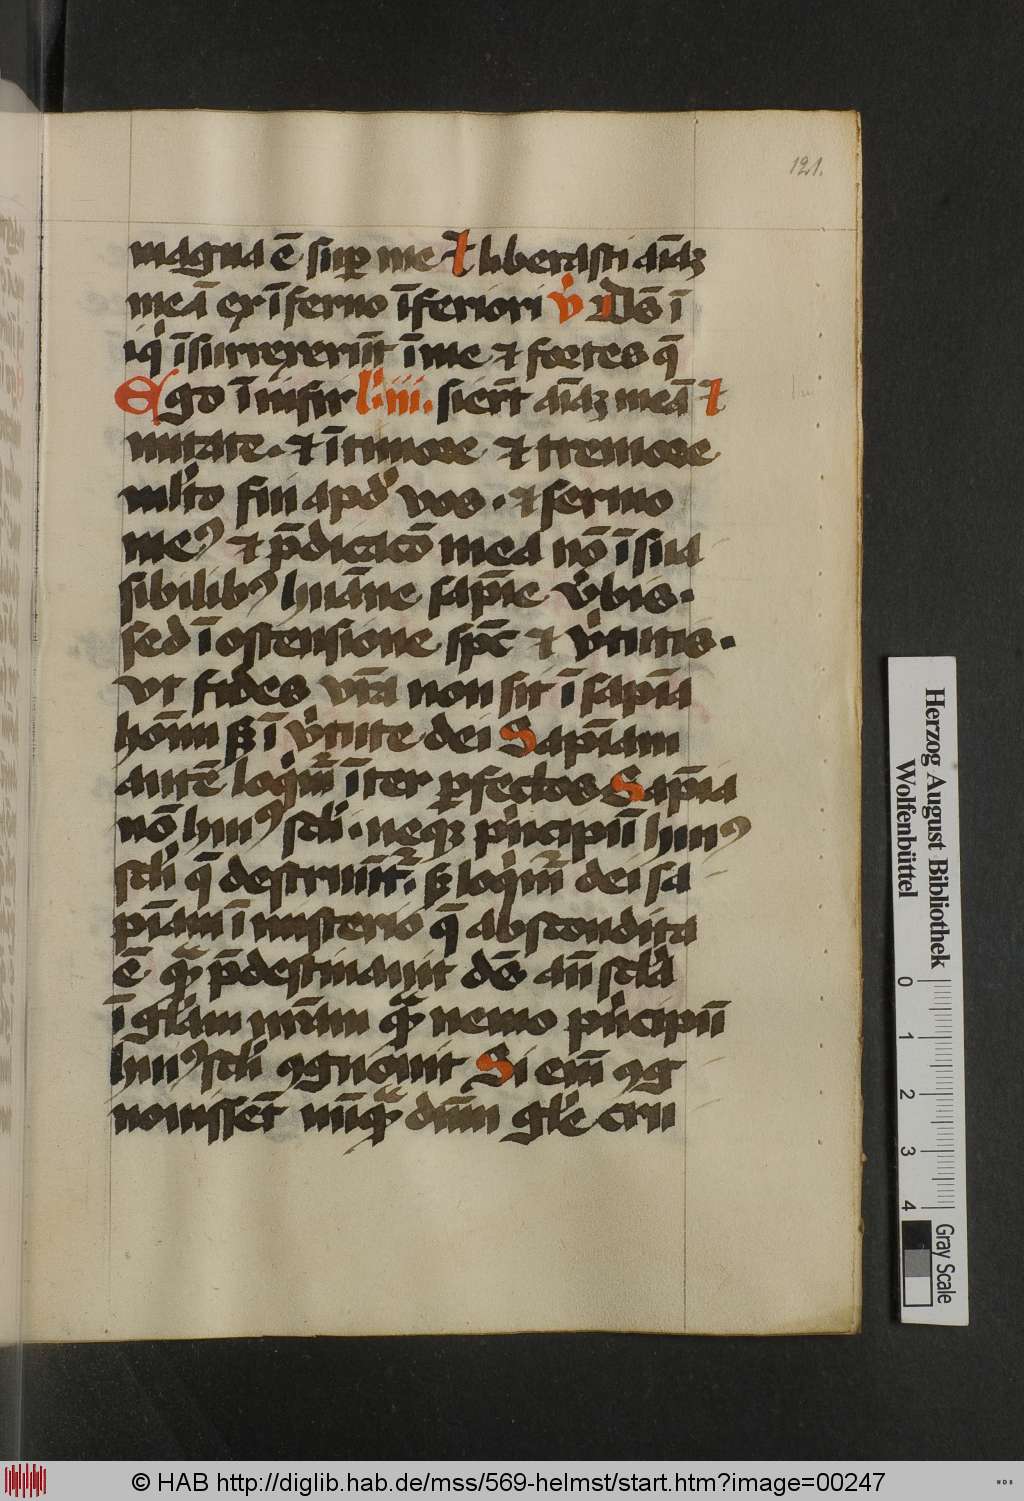 121.
magna ē suꝑ me Et liberasti aīaꝫ
meā ex īferno īferiori v̉ Ds̄ ī
iq̇ īsurrexerūt ī me et fortes q̄
Ego ī infir l̉. iii. sicr̄t aīaꝫ meā Et
mitate. et ītimore et tremore
ml̉to fui apd̉ vos. et sermo
meꝰ et p̄dicacō mea nō ī sua
sibilibꝰ huāne sapīe v̉bis.
sed ī ostensione spc̄ et v̉tutis.
vt fides vr̄a non sit ī sapīa
hoīm sꝫ ī v̉tute dei Sapīam
autē loq̇mᷣ īter ꝑfectos Sapīa
nō huiꝰ scl̉i. neqꝫ pͥncipiū huiꝰ
scl̉i q̄ destruūtᷣ. sꝫ loq̇mᷣ dei sa
pīam ī misterio q̄ abscondita
ē qᷓ p̄destinauit ds̄ an̄ scl̉a
ī gl̉iam nr̄am qᷓ nemo pͥncipiū
huiꝰ scl̉i ꝯgnouit Si em̄ ꝯg
nouissēt nūqᷓ dn̄m gl̉ie cru
Herzog August Bibliothek
Wolfenbüttel
0 1 2 3 4
Gray Scale
© HAB http://diglib.hab.de/mss/569-helmst/start.htm?image=00247